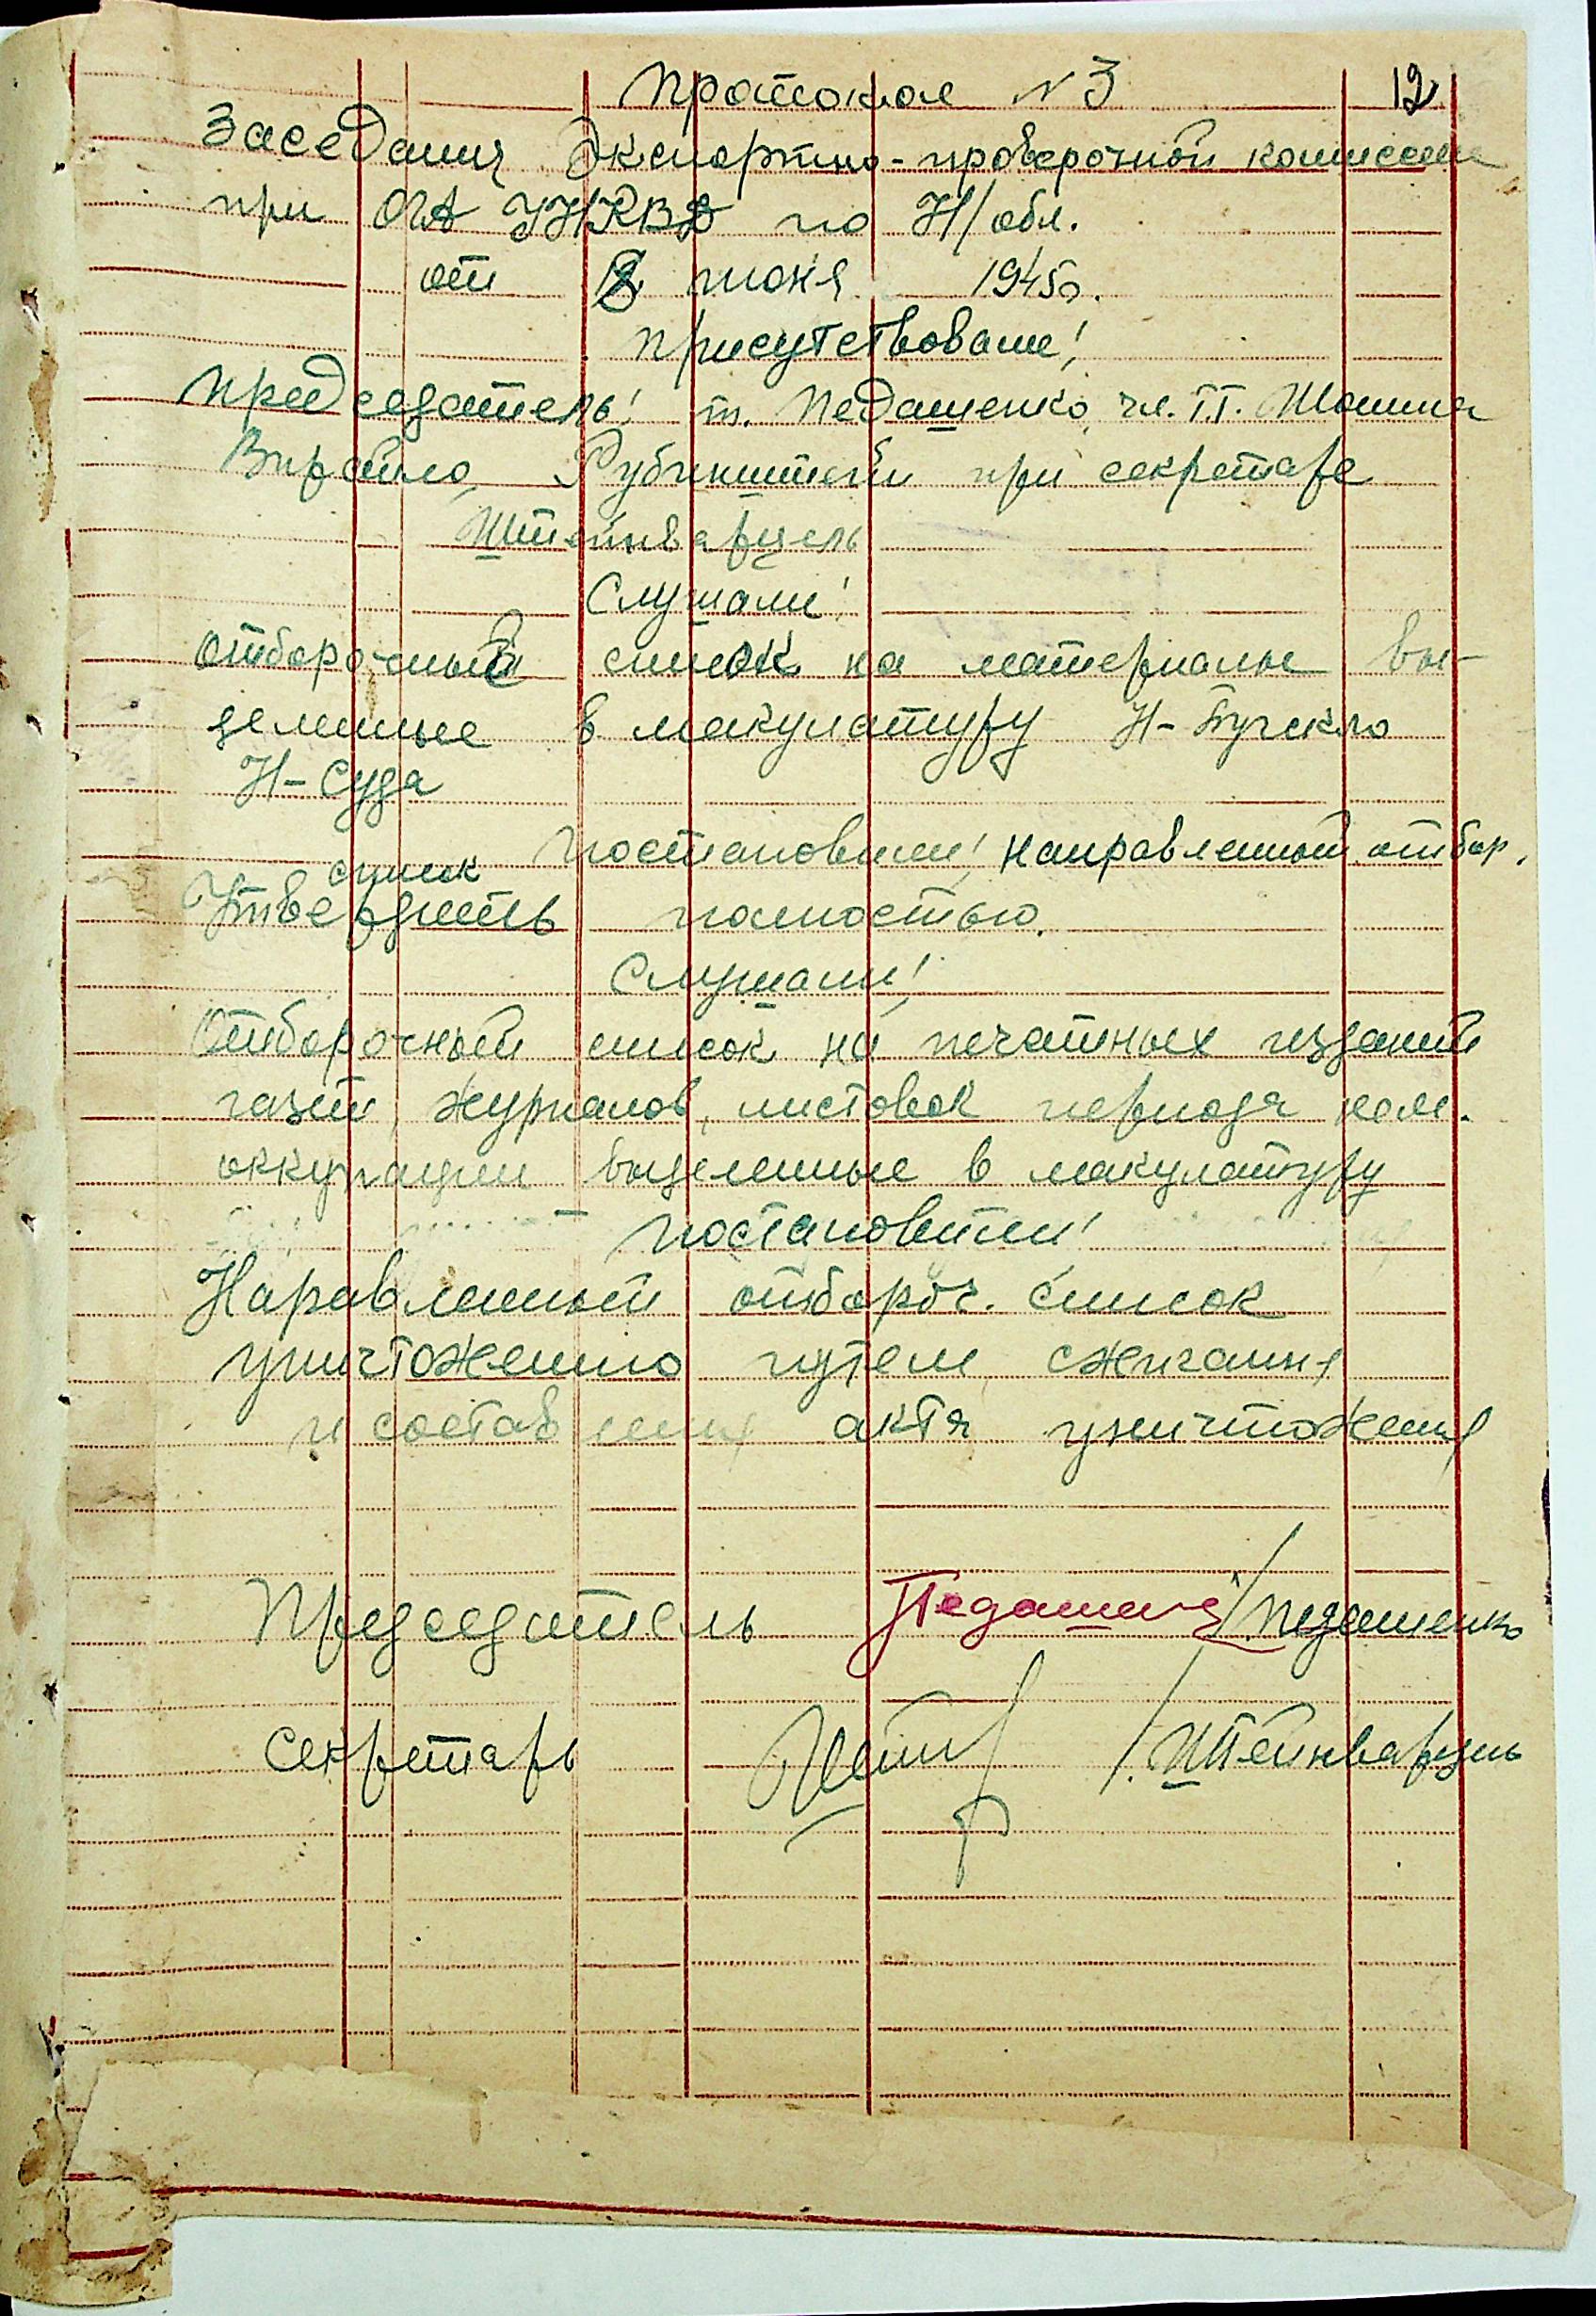 Протокол N 3 12
Заседания Экспортно-проверочной комиссии
при ОГА УНКВД по Н/обл.
от 8 июня 1945г.
Присутствовали!
Председатель! т. Педашенко, чл. т.т. Шошина
Рубинштейн при секретаре
Штейнварцель
Слушали!
Отборочный список на материалы вы-
деленные в макулатуру Н-Бугского
Н-Суда
Постановили! направленный отбор.
список
Утвердить полностью.
Слушали!
Отборочный список на печатных изданий
газет, журналов, листовок периода нем.
оккупации выделенные в макулатуру
Постановили!
Наравленный отбороч. список
уничтожению путем сжигания
и составления акта уничтожения
Председатель Педашенко /Педашенко
Секретарь /. Штейнварцель